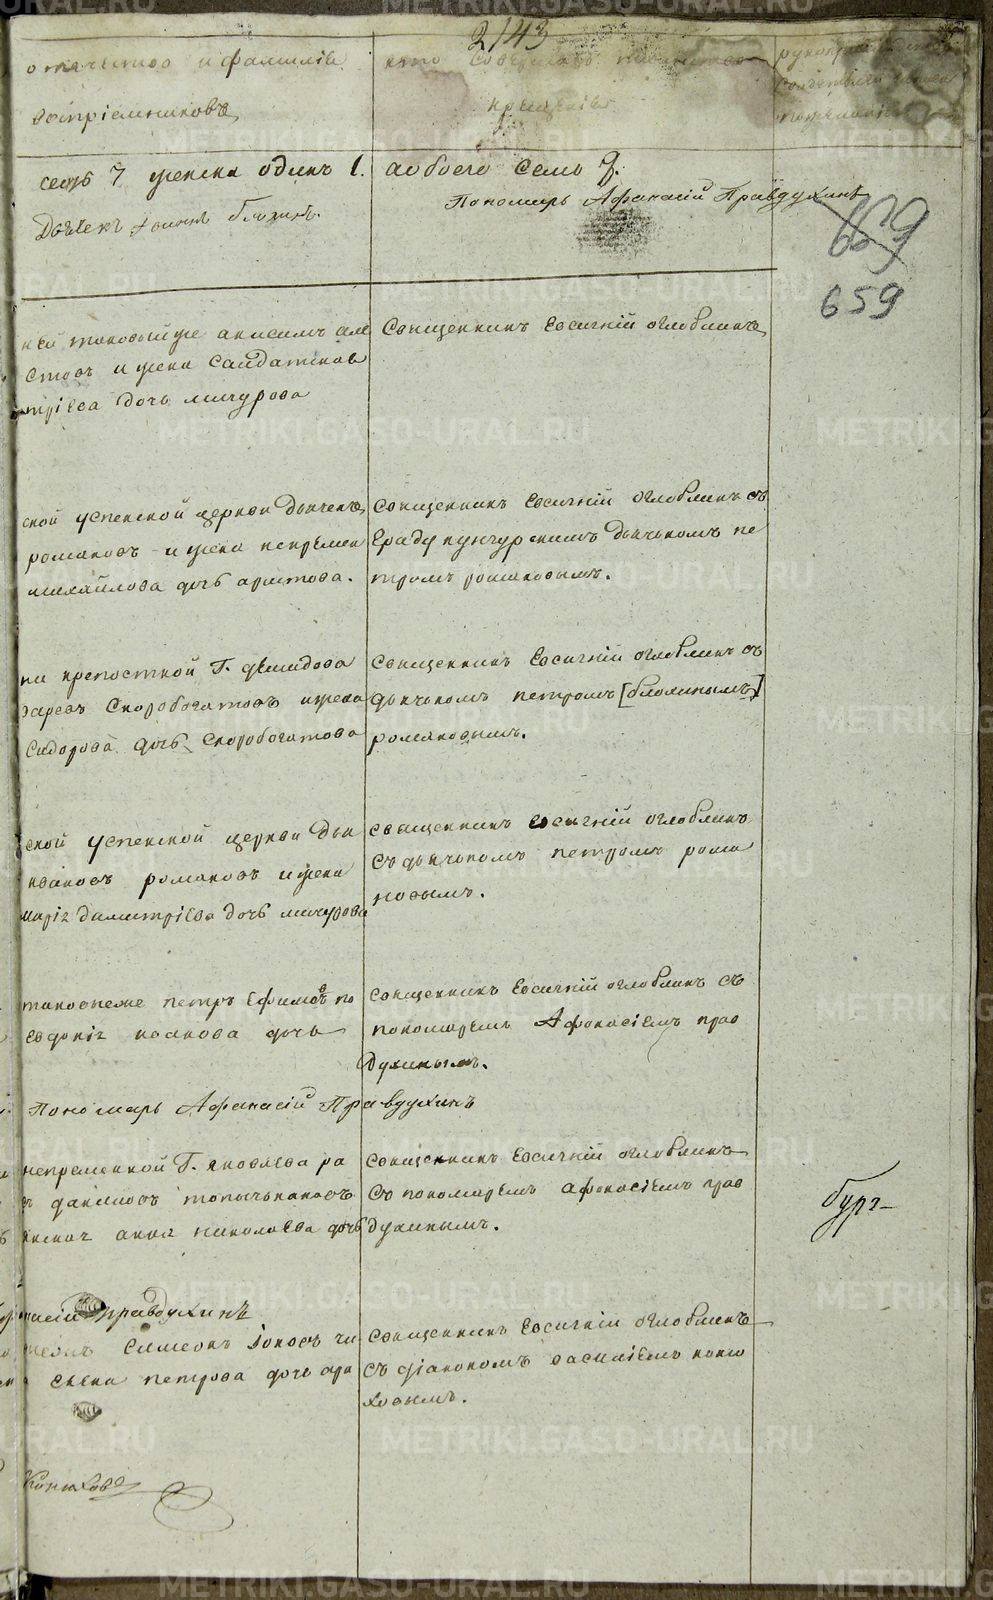 2143
отечество и фамилія
воспріемниковъ
кто совершалъ таинство
крещенія
рукопри
свидетел
по желанію
7 женска одинъ 1.
а обоего семь 7.
Пономарь Афанасій Правдухинъ
Дьячекъ Іоаннъ блохинъ.
659
659
Священникъ Евсигній оглоблинъ
стовъ и жена
тріева дочь мичурова
ской успенской церкви дьячекъ
романовъ и жена непремен
михайлова дочь аристова.
Священникъ Евсигній оглоблинъ съ
Градукунгурскимъ дьячькомъ пе
тромъ романовымъ.
ни крепостной Г. демидова
заревъ Скоробогатовъ и жена
Сидорова дочь скоробогатова
Священникъ Евсигній оглоблинъ съ
дьячькомъ петромъ [блохинымъ]
романовымъ.
ской успенской церкви дья
ивановъ романовъ и жена
марія димитріева дочь мичурова
священникъ Евсигній оглоблинъ
съ дьячькомъ петромъ рома
новымъ.
таковыеже петръ Ефимовъ по
Евдокія иванова дочь
священникъ Евсигній оглоблинъ съ
пономаремъ Афонасіемъ прав
духинымъ.
Пономарь Афанасій Правдухинъ
непременной Г. яковлева ра
данилов
анна николаева дочь
Священникъ Евсигній оглоблинъ
Съ пономаремъ афонасіемъ прав
духинымъ.
бург
насій правдухинъ
симеонъ Іоновъ чи
Елена петрова дочь ора
Священникъ Евсигній оглоблинъ
съ діакономъ василіемъ коню
ховымъ.
Конюховъ
METRIKI.GASO-URAL.RU